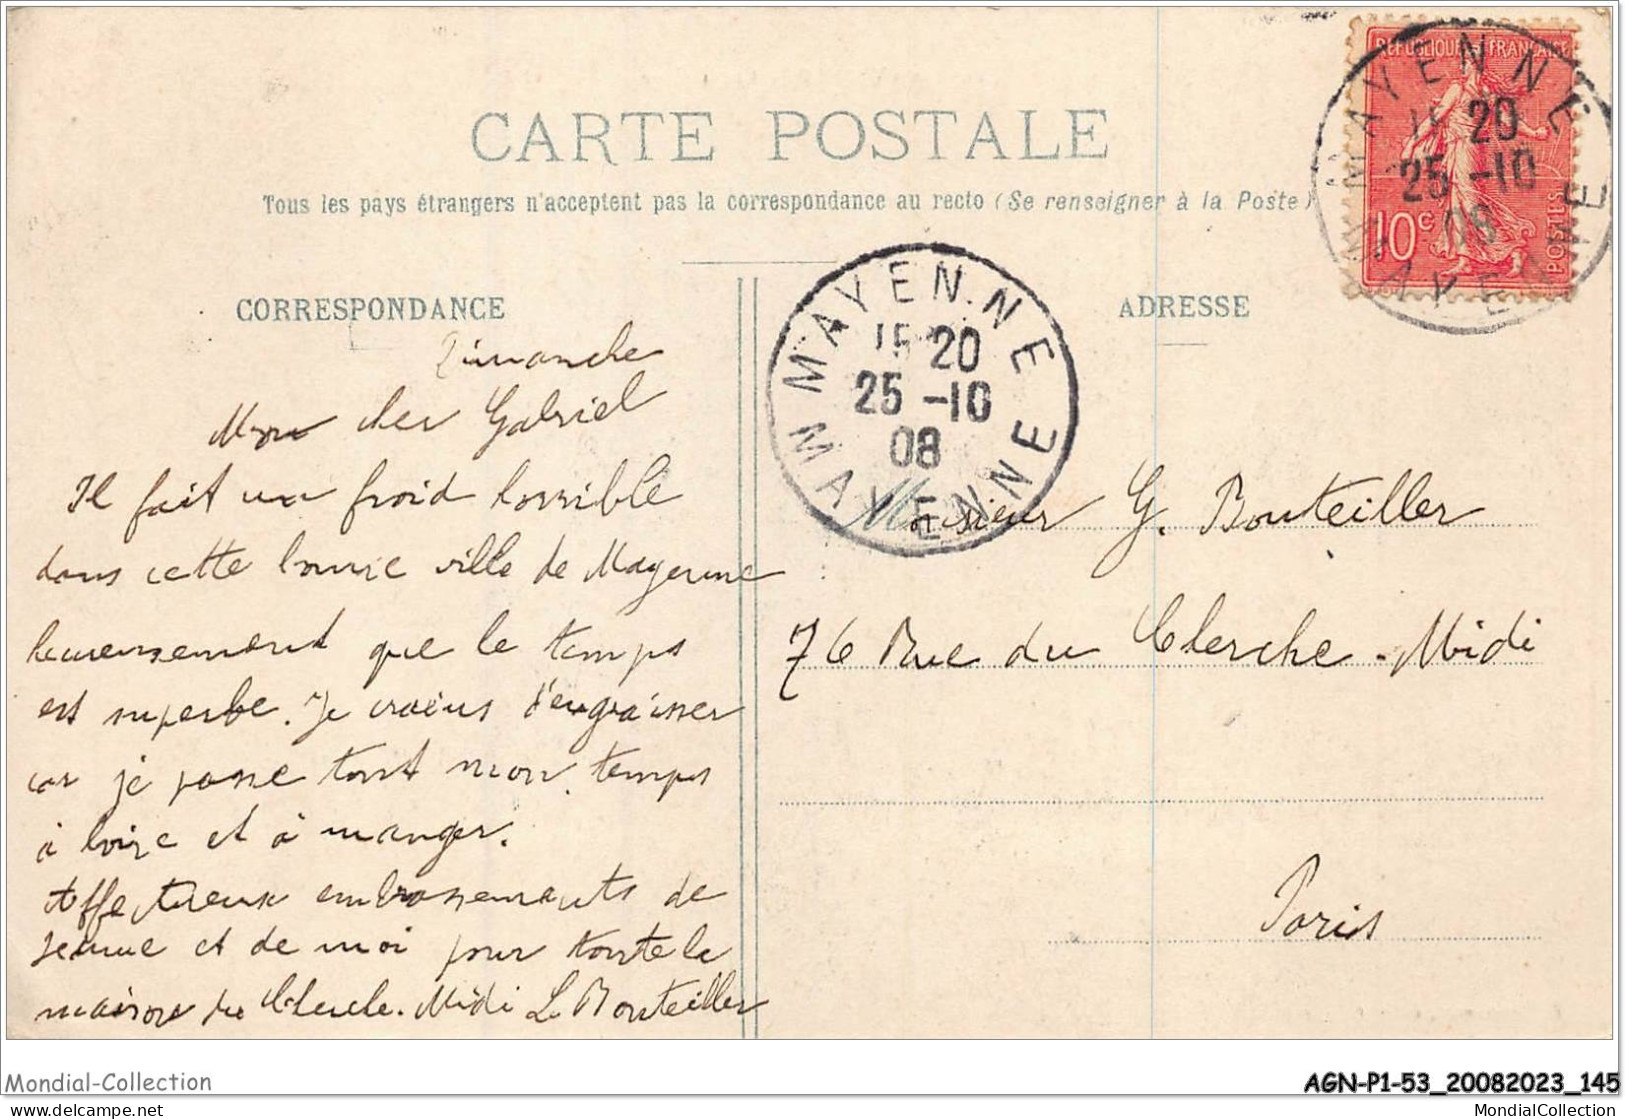 CARTE POSTALE
Tous les pays étrangers n'acceptent pas la correspondance au recto (Se renseigner à la Poste)
RÉPUBLIQUE FRANÇAISE
10c
POSTES
MAYENNE
15 20
25 -10
08
MAYENNE
MAYENNE
15 20
25 -10
08
MAYENNE
CORRESPONDANCE
Dimanche
Mon cher Gabriel
Il fait un froid horrible
dans cette bonne ville de Mayenne
heureusement que le temps
est superbe. Je crains d'engraisser
car je passe tout mon temps
à boire et à manger.
Affectueux embrassements de
Jeanne et de moi pour toute la
maison du Cherche. Midi L Bouteiller
ADRESSE
Monsieur G. Bouteiller
76 Rue du Cherche-Midi
Paris
Mondial-Collection
AGN-P1-53_20082023_145
delcampe.net
MondialCollection